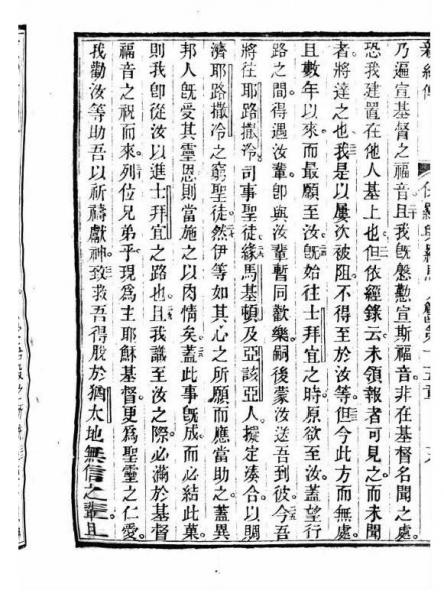 乃遍宣基督之福音且我既慇懃宣斯福音非在基督名聞之處
恐我建置在他人基上也但依經錄云未領報者可見之而未聞
者將達之也我是以屢次被阻不得至於汝等但今此方而無處
且數年以來而最願至汝既始往士拜宜之時原欲至汝蓋望行
路之間得遇汝輩即與汝輩暫同歡樂嗣後蒙汝送吾到彼今吾
將往耶路撒冷司事聖徒緣馬基頓及亞該亞人擬定湊合以賙
濟耶路撒冷之窮聖徒然伊等如其心之所願而應當助之蓋異
邦人既受其靈恩則當施之以肉情矣蓋此事既成而必結此菓
則我即從汝以進士拜宜之路也且我識至汝之際必滿於基督
福音之祝而來列位兄弟乎現為主耶穌基督更為聖靈之仁愛
我勸汝等助吾以祈禱獻神致救吾得脫於猶太地無信之輩且